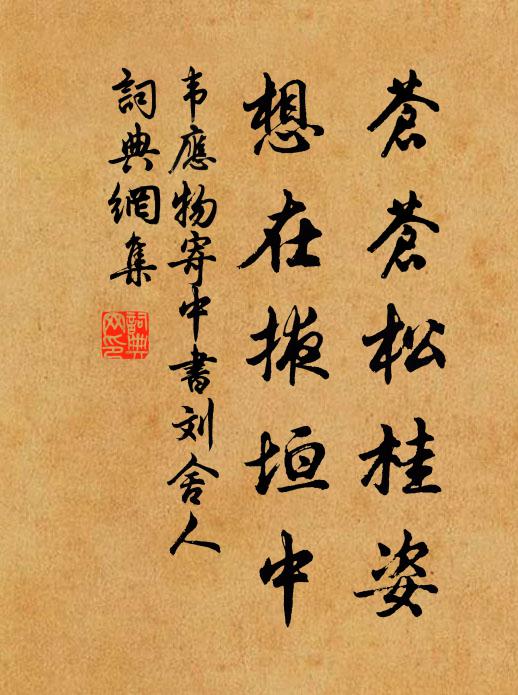 蒼蒼松桂姿
想在掖垣中
韦應物寄中書刘舍人
詞典網集
詞典
网印